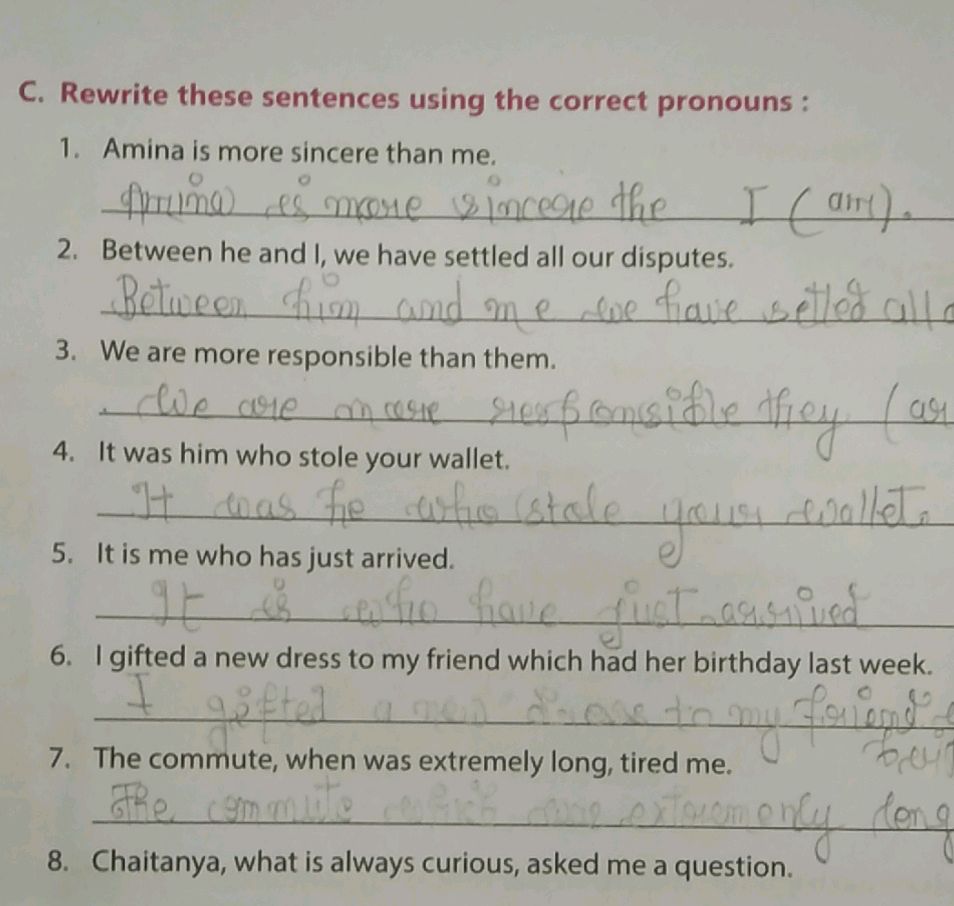 C. Rewrite these sentences using the correct pronouns :
1. Amina is more sincere than me.
Amina is more sincere the I (am).
2. Between he and I, we have settled all our disputes.
Between him and me we have setled all
3. We are more responsible than them.
We are more responsible they (ar
4. It was him who stole your wallet.
It was he who stole your wallet.
5. It is me who has just arrived.
It is who have just arrived
6. I gifted a new dress to my friend which had her birthday last week.
I gifted a new dress to my friend
7. The commute, when was extremely long, tired me.
The commute which extremenly long
8. Chaitanya, what is always curious, asked me a question.